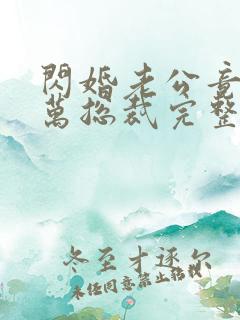 閃婚老公竟
萬總裁完整
冬至才逐尔
未经同意禁止转载